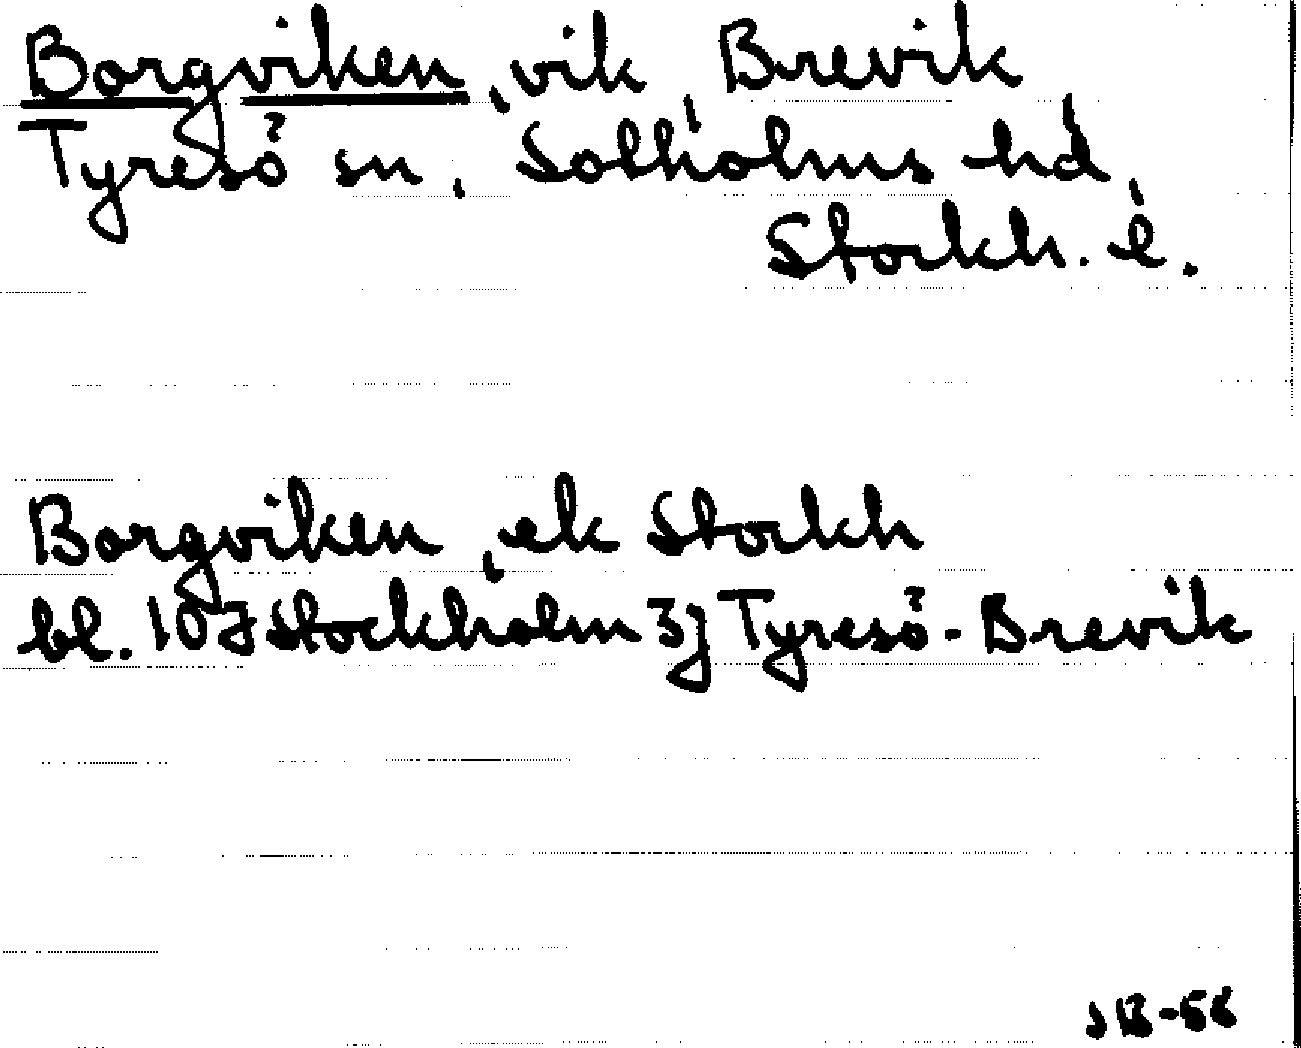 Borgviken, vik, Brevik
Tyresö sn, Sotholms hd,
Stockh. l.
Borgviken, ek Stockh
bl. 107 Stockholm 3j Tyresö-Brevik